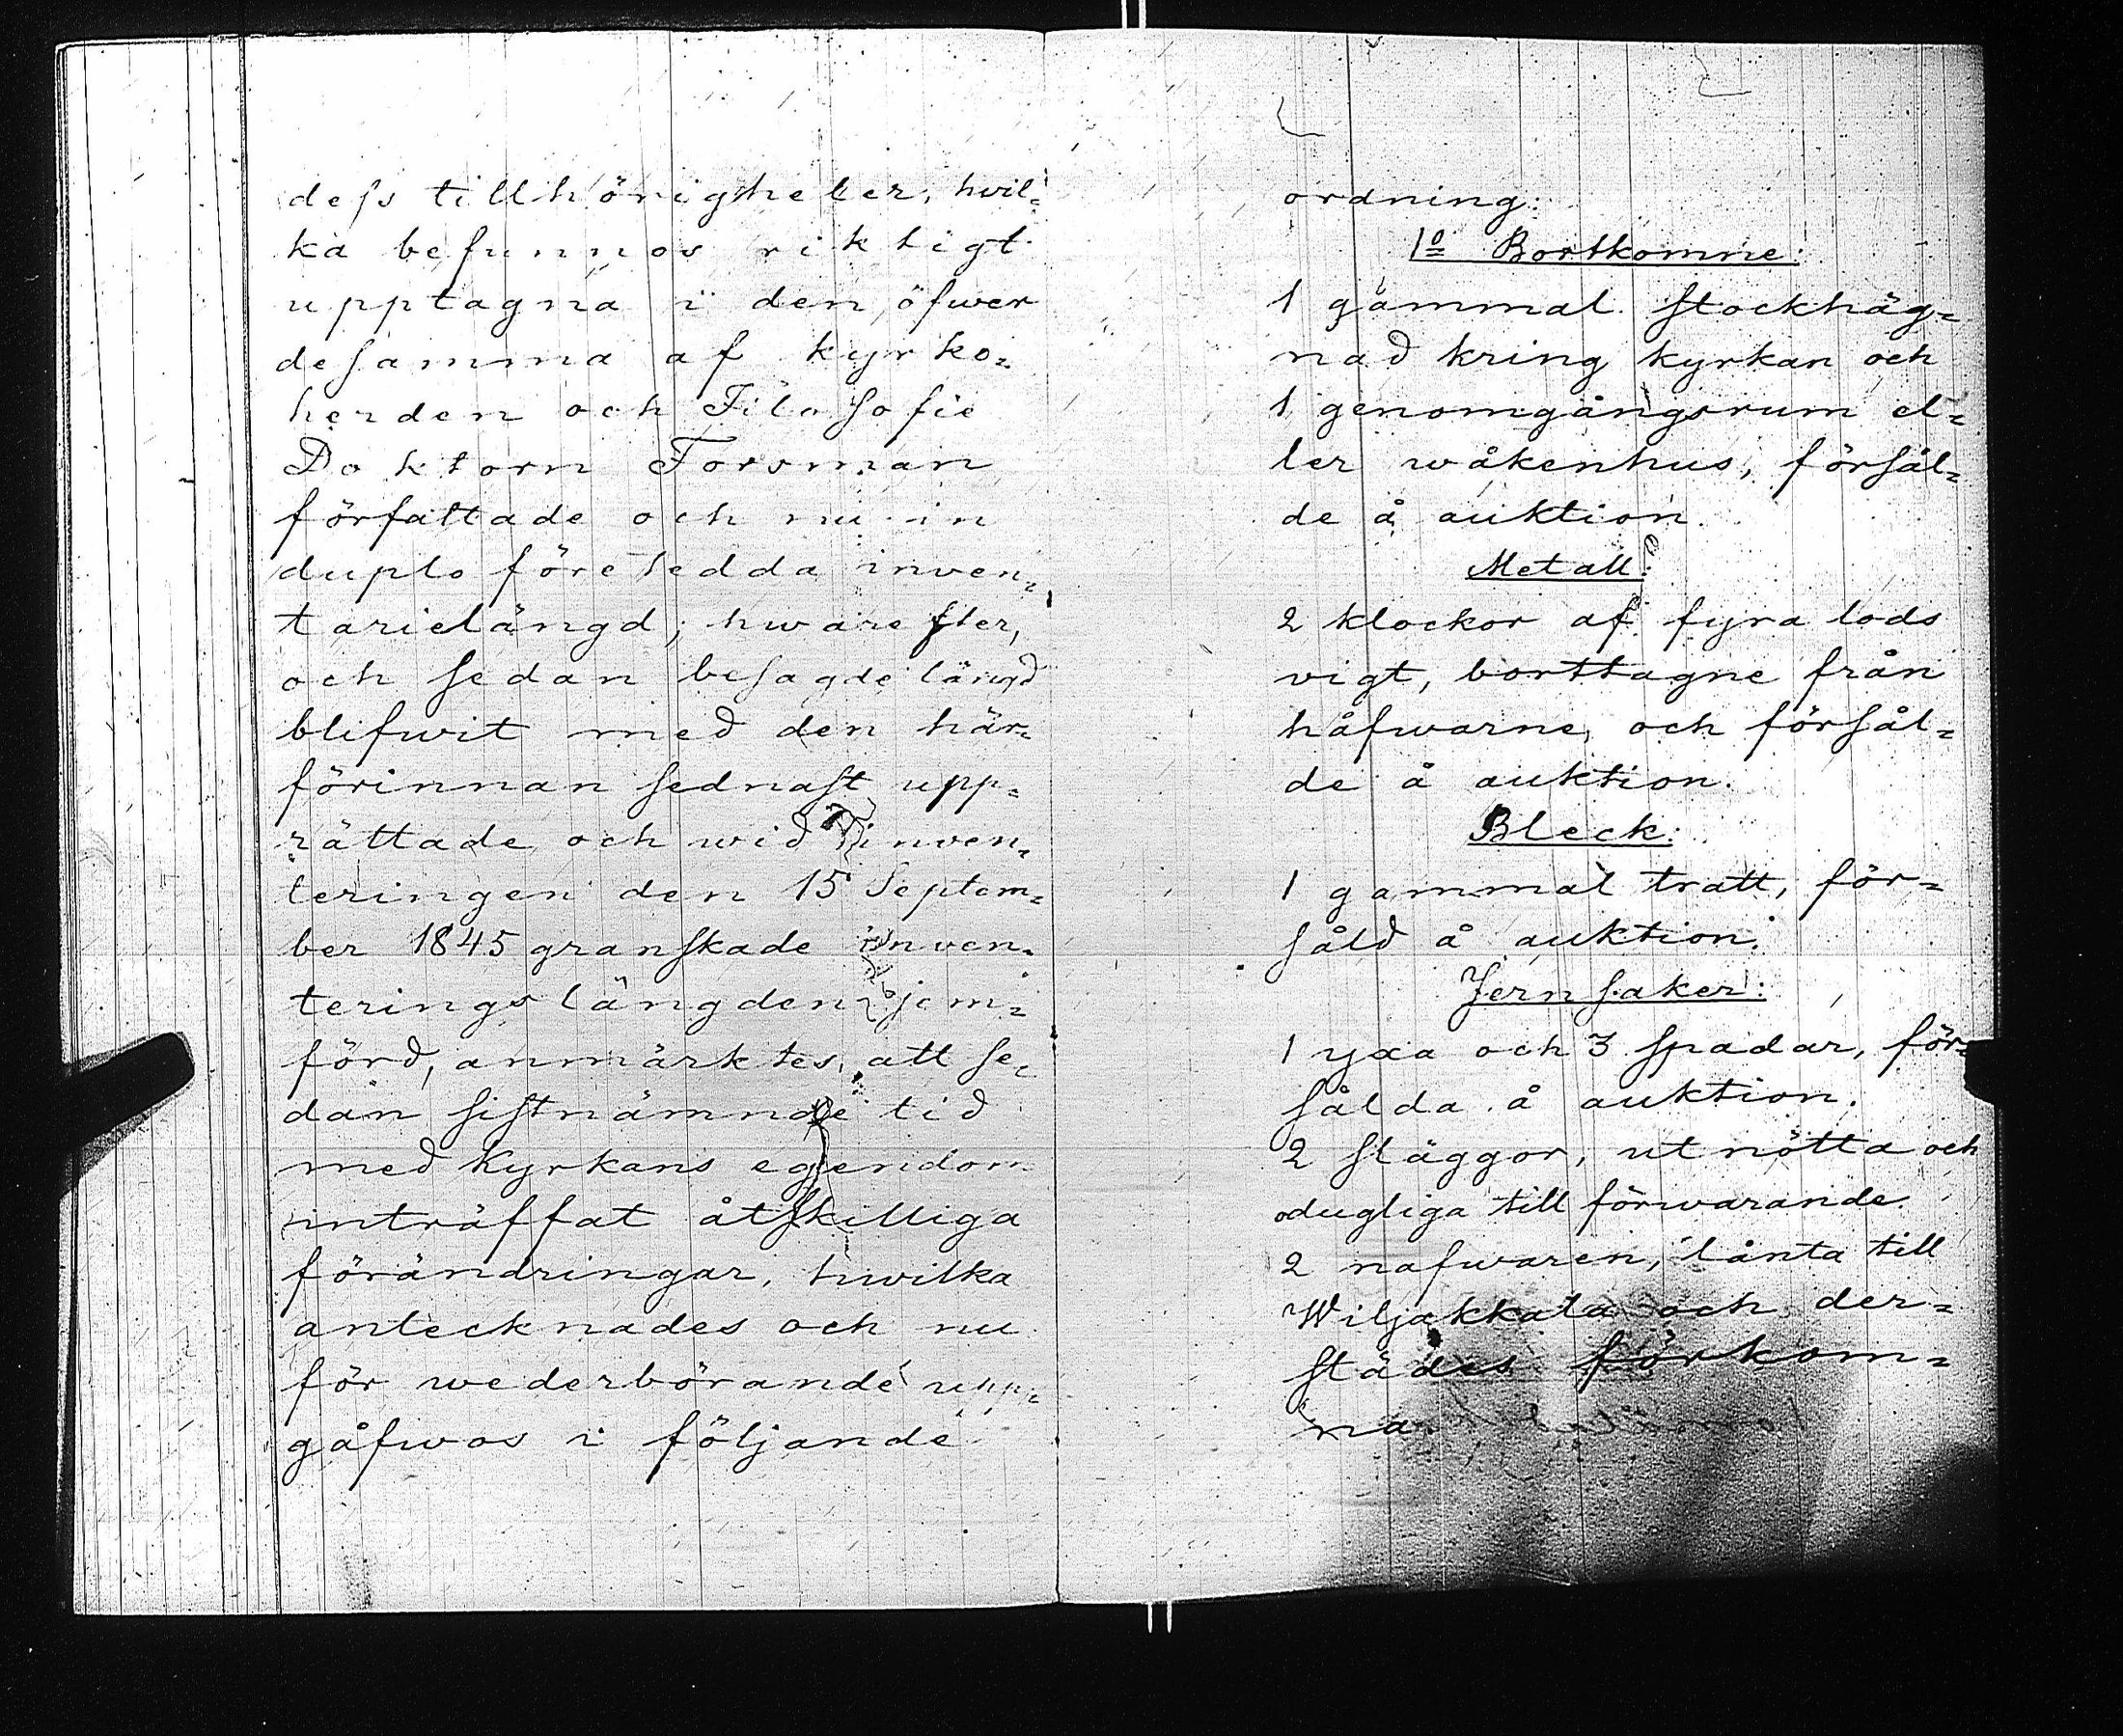 dess tillhörigheter, hvil=
ka befunnos riktigt
upptagna i den öfwer
desamma af kyrko=
herden och Filosofie
Doktorn Forsman
författade och nu in
duplo föreledda inven=
tarielängd; hwarefter,
och sedan besagde längd
blifwit med den här=
förinnan sednast upp=
rättade och wid inven=
teringen den 15 Septem=
ber 1845 granskade inven=
teringslängden jem=
förd, anmärktes, att se=
dan sistnämnde tid
med Kyrkans egendom
inträffat åtskilliga
förändringar, hwilka
antecknades och nu
för wederbörande upp=
gåfwos i följande
ordning:
1o Bortkomne:
1 gammal stockhäg=
nad kring kyrkan och
1 genomgångsrum el=
ler wåkenhus, försål=
de å auktion.
Metall:
2 klockor af fyra lods
vigt, borttagne från
håfwarne, och försål=
de å auktion.
Bleck:
1 gammal tratt, för=
såld å auktion.
Jernsaker:
1 yxa och 3 spadar, för=
sålda å auktion.
2 släggor, utnötta och
odugliga till förwarande.
2 nafwaren, lånta till
Wiljakkala och der=
städes förkom=
na.